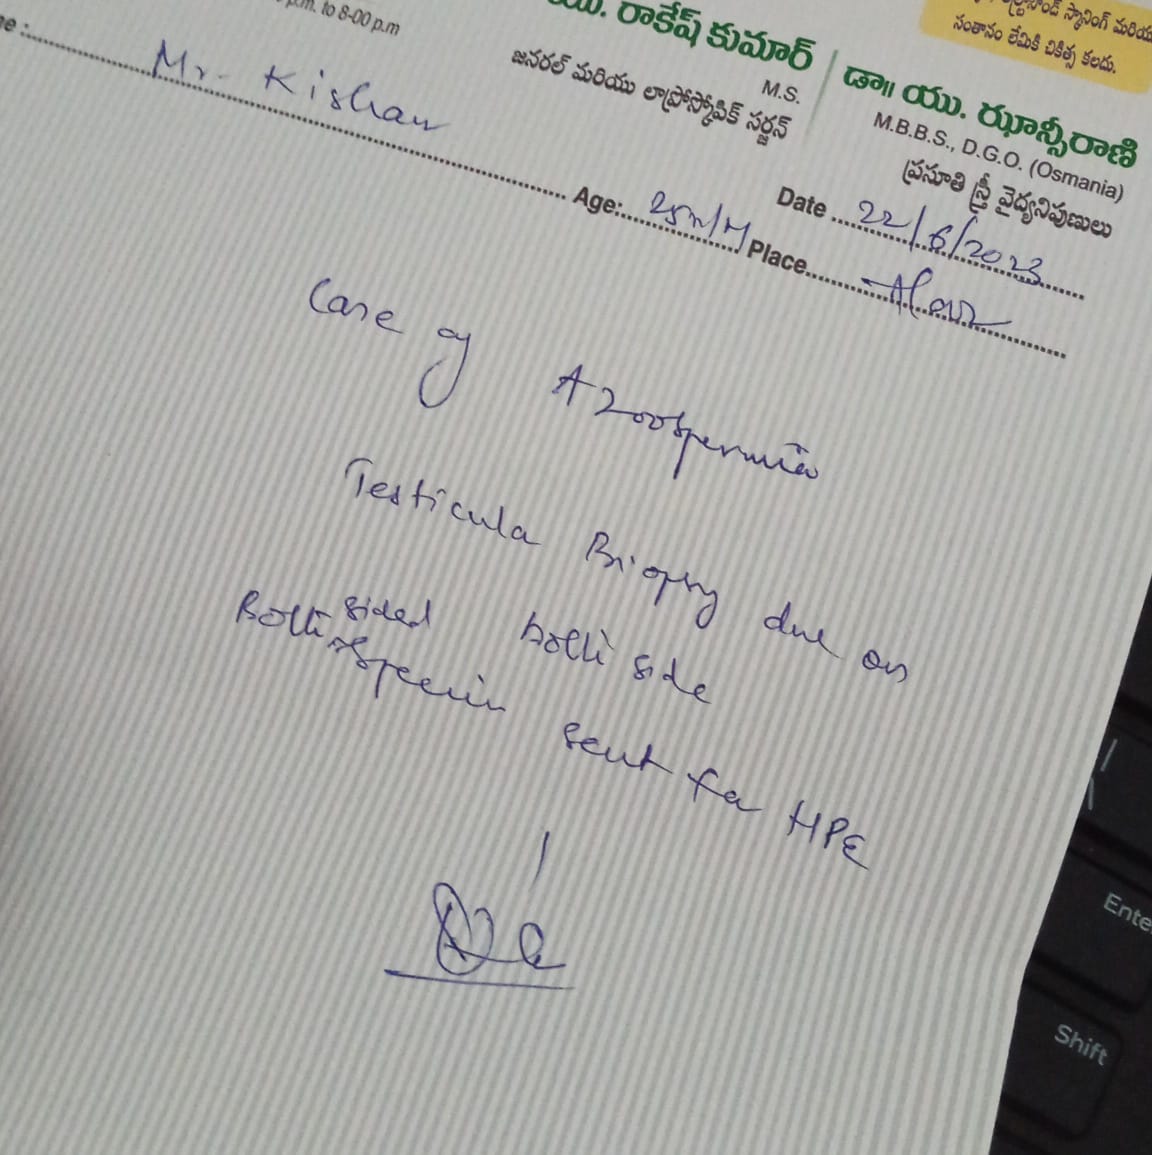 p.m. to 8-00 p.m
యు. రాకేష్ కుమార్
M.S.
జనరల్ మరియు లాప్రోస్కోపిక్ సర్జన్
డా॥ యు. ఝాన్సీరాణి
M.B.B.S., D.G.O. (Osmania)
ప్రసూతి స్త్రీ వైద్యనిపుణులు
స్కానింగ్ మరియు
సంతానం లేమికి చికిత్స కలదు.
Mr. Kishan
Age: Date 22/6/2023
Place
Case of Azoospermia
Testicula Biopsy due on
both side
Both sided specim sent for HPE
Enter
Shift